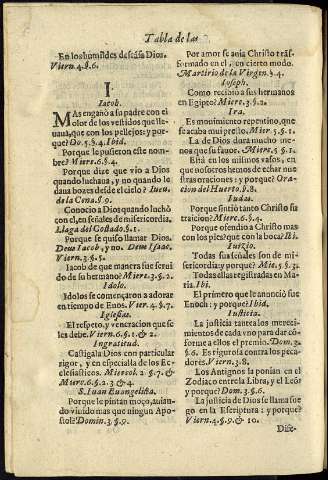 Tabla de las
En los humildes descãsa Dios.
Viern.4.§.6.
I.
Iacob.
MAs engañò a su padre con el
olor de los vestidos que lle-
uaua, que con los pellejos: y por-
que? Do.5.§.4. Ibid.
Porque le pusieron este nom-
bre? Mierc.6.§.4.
Porque dize que vio a Dios
quando luchaua, y no quando le
daua bozes desde el cielo? Iueu.
de la Cena.§.9.
Conocio a Dios quando luchò
con el, en señales de misericordia.
Llaga del Costado.§.1.
Porque se quiso llamar Dios.
Deus Iacob, y no, Deus Isaac.
Viern.3.§.5.
Iacob de que manera fue serui-
do de su hermano? Mierc.3.§.2.
Idolo.
Idolos se començaron a adorar
en tiempo de Enos. Vier.4.§.7.
Iglesias.
El respeto, y veneracion que se
les debe. Viern.6.§.1. & 2.
Ingratitud.
Castigala Dios con particular
rigor, y en especial la de los Ec-
clesiasticos. Miercol.2.§.7. &
Mierc.6.§.2.3.& 4.
S. Iuan Euangelista.
Porque le pintan moço, auien-
do viuido mas que ningun Apos-
tol? Domin.3.§.9.
Por amor se auia Christo trãs-
formado en el, en cierto modo.
Martirio de la Virgen.§.4.
Ioseph.
Como recibio a sus hermanos
en Egipto? Mierc.3.§.2.
Ira.
Es mouimiento repentino, que
se acaba mui presto. Mier.5.§.1.
La de Dios dura mucho me-
nos que su fauor. Mierc.5.§.1.
Està en los mismos vasos, en
que nosotros hemos de echar nue-
stras oraciones: y porque? Ora-
cion del Huerto.§.8.
Iudas.
Porque sintiò tanto Christo su
traicion? Mierc.6.§.4.
Porque ofendia a Christo mas
con los pies que con la boca? Ibi.
Iuizio.
Todas sus señales son de mi-
sericordia: y porque? Mie.5.§.3.
Todas ellas registradas en Ma-
ria. Ibi.
El primero que le anunciò fue
Enoch: y porque? Ibid.
Iusticia.
La justicia tantea los mereci-
mientos de cada vno para dar cõ-
forme a ellos el premio. Dom.3.
§.6. Es rigurosa contra los peca-
dores. Viern.3.§.8.
Los Antiguos la ponian en el
Zodiaco entre la Libra, y el Leõ:
y porque? Dom.3.§.6.
La justicia de Dios se llama fue-
go en la Escriptura: y porque?
Viern.4.§.9. & 10.
Dife-